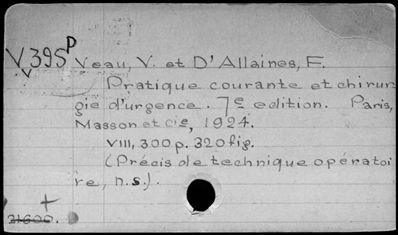 V395p Veau, V. et D'Allaines, F.
V
Pratique courante et chirur
gie d'urgence. 7e edition. Paris,
Masson et cie, 1924.
VIII, 300 p. 320 fig.
(Précis de technique opératoi
re, n.s.).
+
21600.